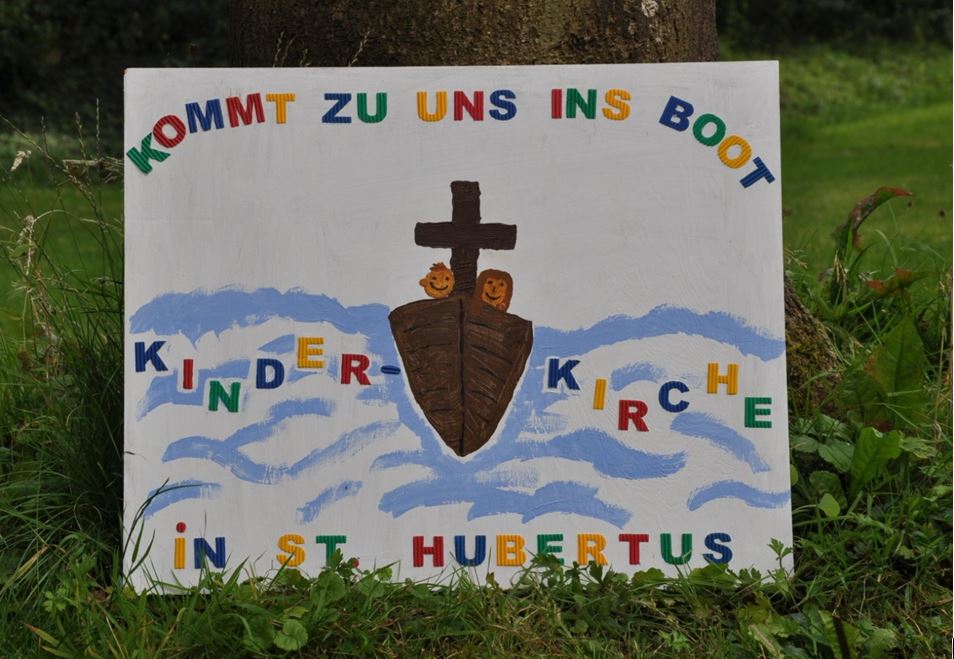 KOMMT ZU UNS INS BOOT
KINDER-KIRCHE
iN ST. HUBERTUS